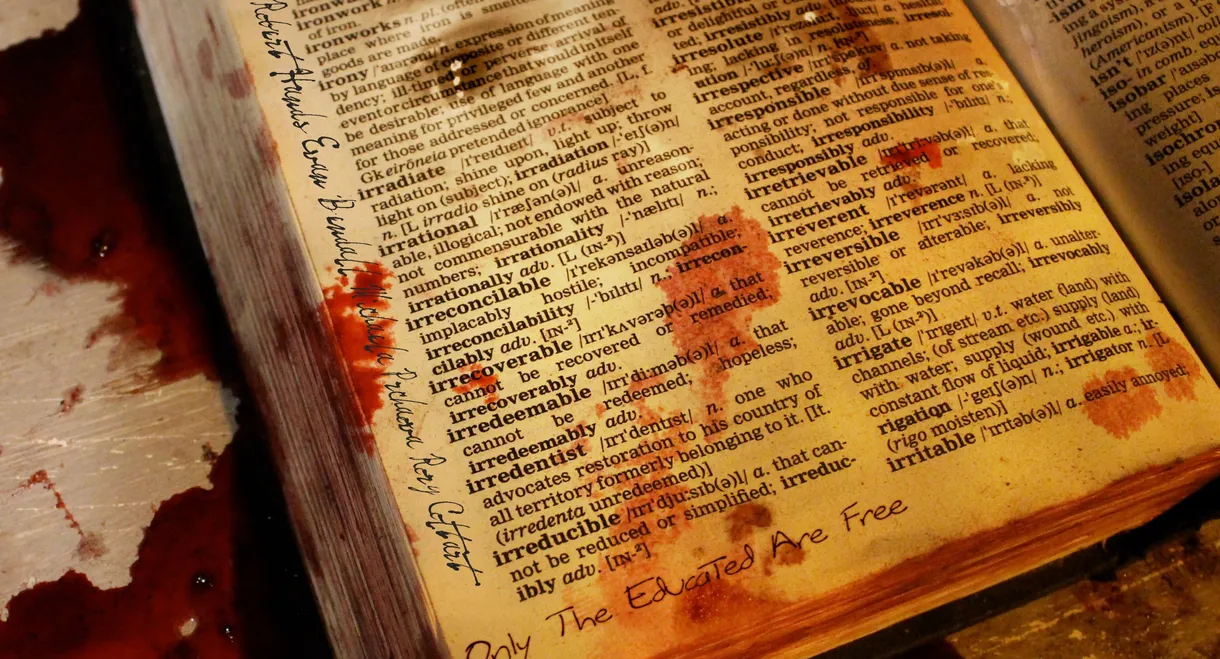 ironwork
of iron.
ironworks n. pl. (often
place where iron is
goods are made.
irony /'aɪərənɪ/ n. expression of meaning
by language of opposite or different ten-
dency; ill-timed or perverse arrival of
event or circumstance that would in itself
be desirable; use of language with one
meaning for privileged few and another
for those addressed or concerned. [L, f.
Gk eirōneia pretended ignorance]
irradiate /ɪ'reɪdɪeɪt/ v.t. subject to
radiation; shine upon, light up; throw
light on (subject); irradiation /-'eɪʃ(ə)n/
n. [L irradio shine on (radius ray)]
irrational /ɪ'ræʃən(ə)l/ a. unreason-
able, illogical; not endowed with reason;
not commensurable with the natural
numbers; irrationality /-'nælɪtɪ/ n.;
irrationally adv. [L (IN-²)]
irreconcilable /ɪ'rekənsaɪləb(ə)l/ a.
implacably hostile; incompatible;
irreconcilability /-'bɪlɪtɪ/ n., irrecon-
cilably adv. [IN-²]
irrecoverable /ɪrɪ'kʌvərəb(ə)l/ a. that
cannot be recovered or remedied;
irrecoverably adv.
irredeemable /ɪrɪ'di:məb(ə)l/ a. that
cannot be redeemed; hopeless;
irredeemably adv.
irredentist /ɪrɪ'dentɪst/ n. one who
advocates restoration to his country of
all territory formerly belonging to it. [It.
(irredenta unredeemed)]
irreducible /ɪrɪ'dju:sɪb(ə)l/ a. that can-
not be reduced or simplified; irreduc-
ibly adv. [IN-²]
irresistible
or delightful or
ted; irresistibly
irresolute /ɪ'rezəlu:t/ a. hesitat-
ing; lacking in resoluteness; irresol-
ution /-'lu:ʃ(ə)n/ n. [IN-²]
irrespective /ɪrɪ'spektɪv/ a. not taking
account, regardless of.
irresponsible /ɪrɪ'spɒnsɪb(ə)l/ a.
acting or done without due sense of res-
ponsibility; not responsible for one's
conduct; irresponsibility /-'bɪlɪtɪ/ n.;
irresponsibly adv.
irretrievable /ɪrɪ'tri:vəb(ə)l/ a. that
cannot be retrieved or recovered;
irretrievably adv.
irreverent /ɪ'revərənt/ a. lacking
reverence; irreverence n. [L (IN-²)]
irreversible /ɪrɪ'vɜ:sɪb(ə)l/ a. not
reversible or alterable; irreversibly
adv. [IN-²]
irrevocable /ɪ'revəkəb(ə)l/ a. unalter-
able; gone beyond recall; irrevocably
adv. [L (IN-²)]
irrigate /'ɪrɪgeɪt/ v.t. water (land) with
channels; (of stream etc.) supply (land)
with water; supply (wound etc.) with
constant flow of liquid; irrigable a.; ir-
rigation /-'geɪʃ(ə)n/ n.; irrigator n. [L
(rigo moisten)]
irritable /'ɪrɪtəb(ə)l/ a. easily annoyed;
-ism
ing a sys
jingoism),
heroism), or a
(Americanism)
isn't /'ɪz(ə)nt/
iso- in comb. equ
isobar /'aɪsəba
ing places
pressure; is
weight]
isochron
ing equ
[ISO-]
isola
alo
Only The Educated Are Free